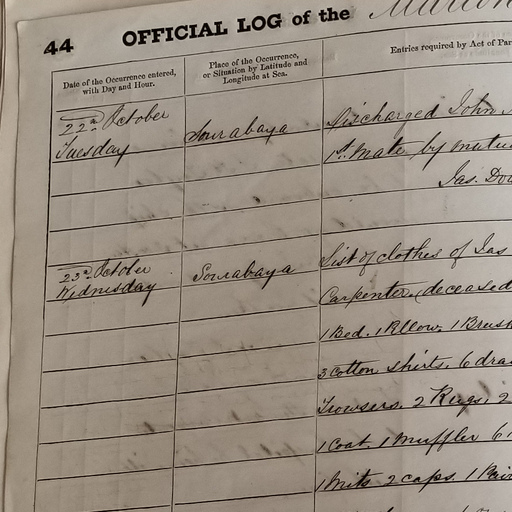 44 OFFICIAL LOG of the
Date of the Occurrence entered, with Day and Hour.
Place of the Occurrence, or Situation by Latitude and Longitude at Sea.
Entries required by Act of Par
22nd October Sourabaya Discharged John
Tuesday 1st Mate by mutu
Jas. Dou
23rd October Sourabaya List of clothes of Jas
Wednesday Carpenter (deceased
1 Bed. 1 Pillow. 1 Brush
3 Cotton shirts. 6 dra
Trowsers. 2 Rugs, 2
1 Coat. 1 Muffler 6
1 Mits 2 caps. 1 Pair